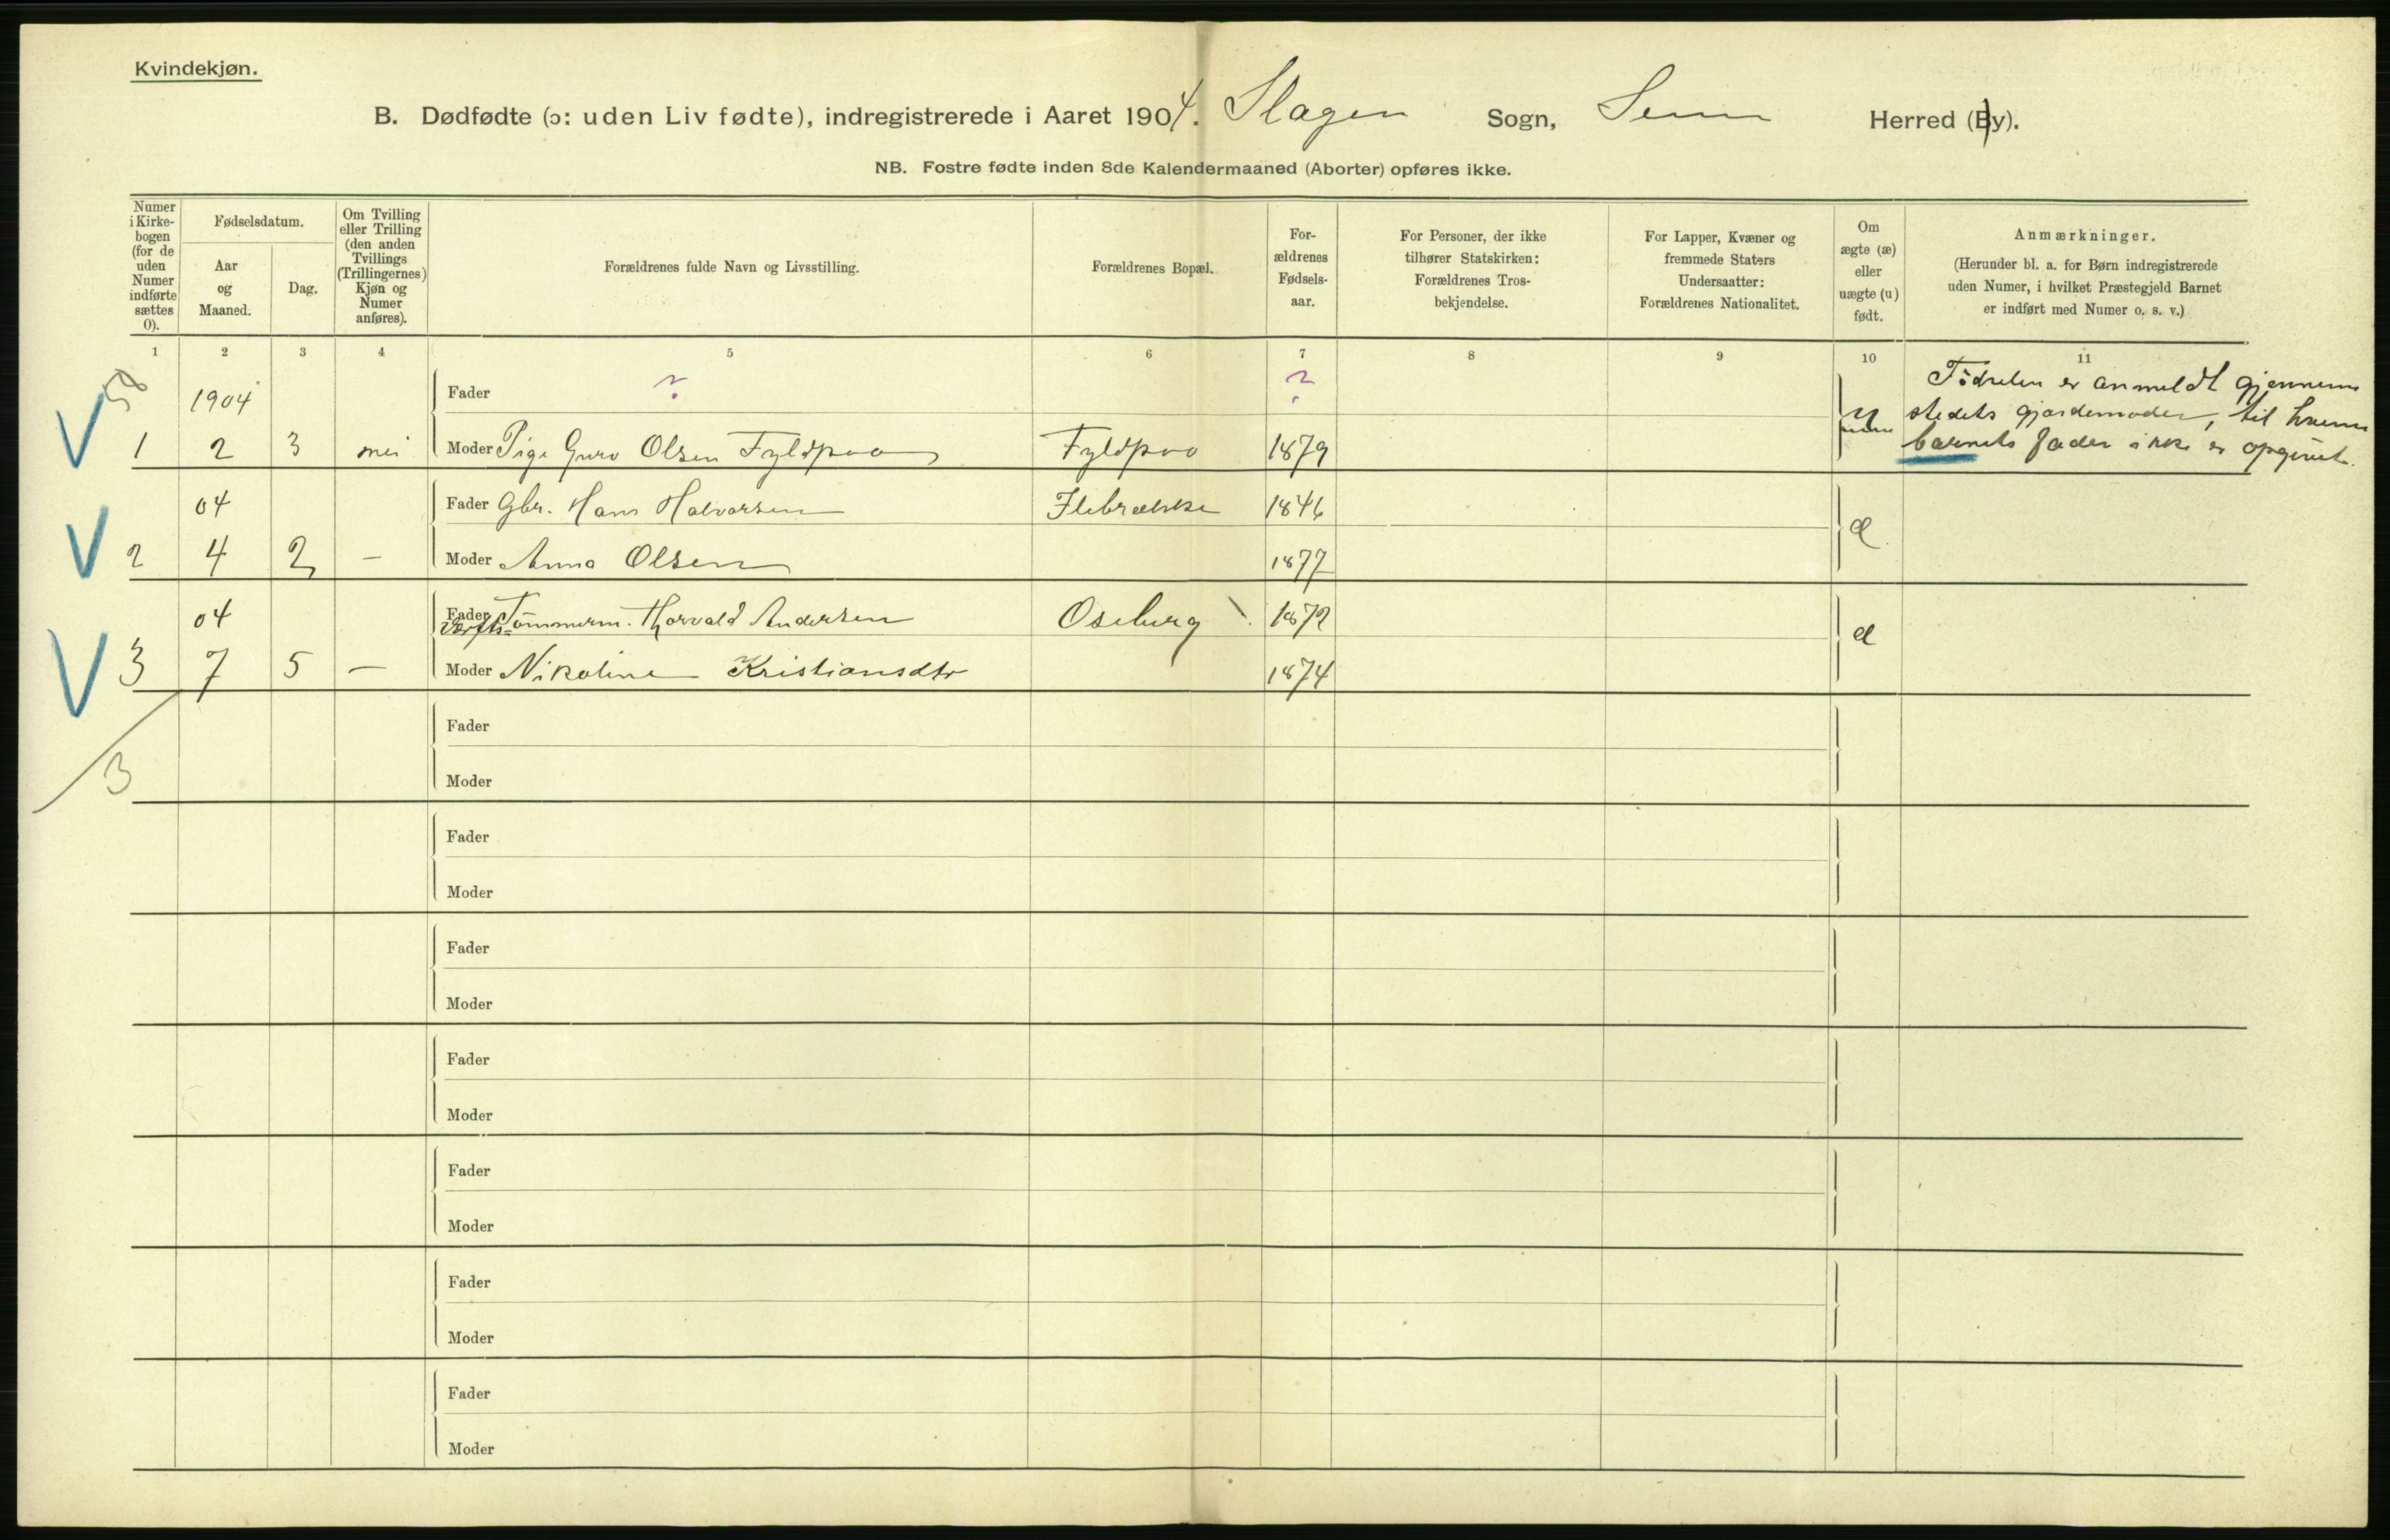 Kvindekjøn.
B. Dødfødte (ɔ: uden Liv fødte), indregistrerede i Aaret 1904. Slagen Sogn, Sem Herred (By).
NB. Fostre fødte inden 8de Kalendermaaned (Aborter) opføres ikke.
Numer i Kirke-bogen (for de uden Numer indførte sættes 0).
Fødselsdatum.
Aar og Maaned.
Dag.
Om Tvilling eller Trilling (den anden Tvillings (Trillingernes) Kjøn og Numer anføres).
Forældrenes fulde Navn og Livsstilling.
Forældrenes Bopæl.
For-ældrenes Fødsels-aar.
For Personer, der ikke tilhører Statskirken: Forældrenes Tros-bekjendelse.
For Lapper, Kvæner og fremmede Staters Undersaatter: Forældrenes Nationalitet.
Om ægte (æ) eller uægte (u) født.
Anmærkninger. (Herunder bl. a. for Børn indregistrerede uden Numer, i hvilket Præstegjeld Barnet er indført med Numer o. s. v.)
1 2 3 4 5 6 7 8 9 10 11
58
1904 Fader ? ?
V 1 2 3 nei Moder Pige Guro Olsen Fyldpaa Fyldpaa 1879 u
Fødselen er anmeldt gjennem
stedets gjordemoder, til hvem
barnets fader ikke er opgivet.
04 Fader Gbr. Hans Halvorsen Ilebrække 1846
V 2 4 2 — Moder Anna Olsen 1877 æ
04 Fader Verfts- Tømmerm. Thorvald Andersen Oseberg 1872
V 3 7 5 — Moder Nikoline Kristiansdtr 1874 æ
3
Fader
Moder
Fader
Moder
Fader
Moder
Fader
Moder
Fader
Moder
Fader
Moder
Fader
Moder